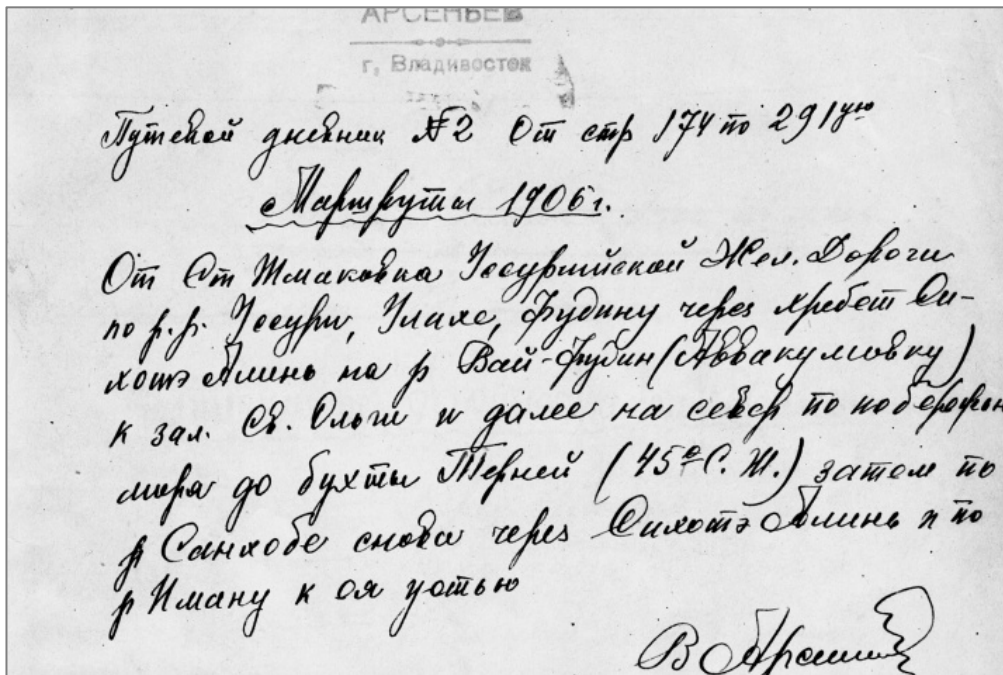 АРСЕНЬЕВ
г. Владивосток
Путевой дневник №2 От стр 174 по 291ую
Маршруты 1906 г.
От Ст Шмаковка Уссурийской Жел. Дороги
по р.р. Уссури, Улахе, Фудину через хребет Си-
хотэ Алинь на р Вай-Фудин (Аввакумовку)
к зал. Св. Ольги и далее на север по побережью
моря до бухты Терней (45° С. Ш.) затем по
р Санхобе снова через Сихотэ Алинь и по
р Иману к ея устью
В Арсеньев